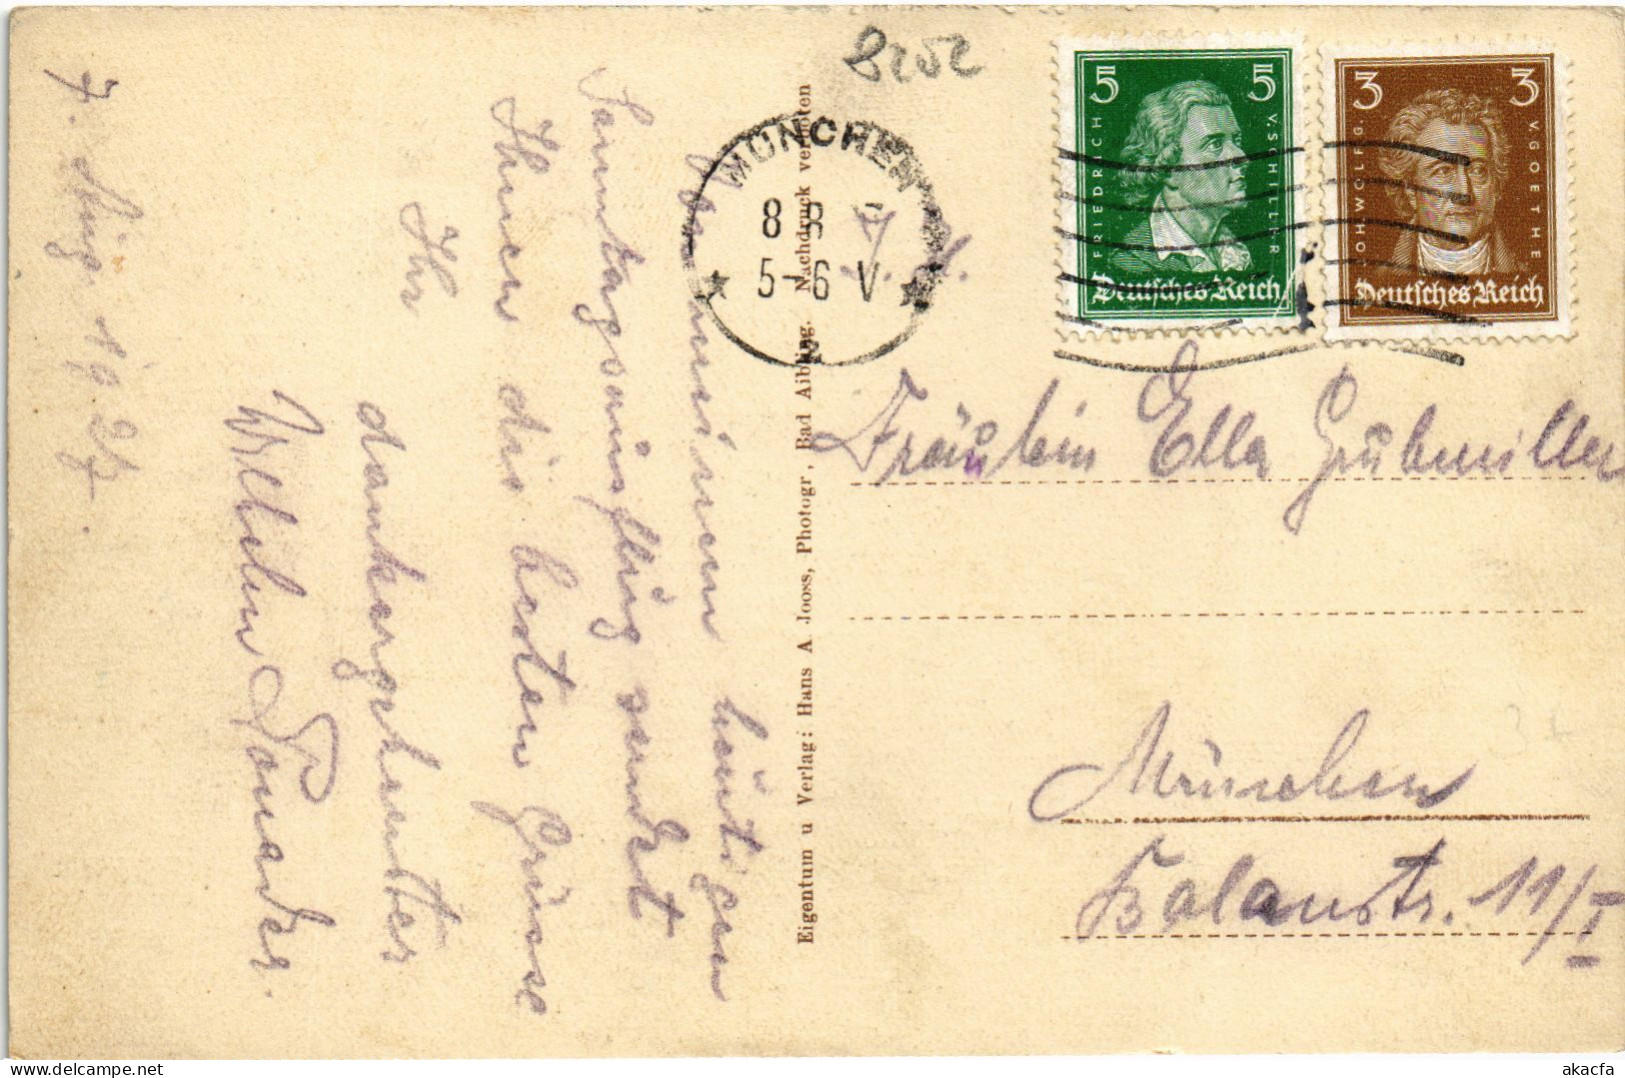 8252
MÜNCHEN
8 8
5-6 V
5 5
FRIEDRICH V. SCHILLER
Deutsches Reich
3 3
JOH. WOLFG. V. GOETHE
Deutsches Reich
Von meinem heutigen
Sonntagsausflug sendet
Ihnen die besten Grüsse
Ihr
dankergebenster
Wilhelm
7. Aug. 1927.
Eigentum u Verlag: Hans A Jooss, Photogr, Bad Aibling. Nachdruck verboten
Fräulein Ella Grubmiller
München
Balanstr. 11/I
akacfa